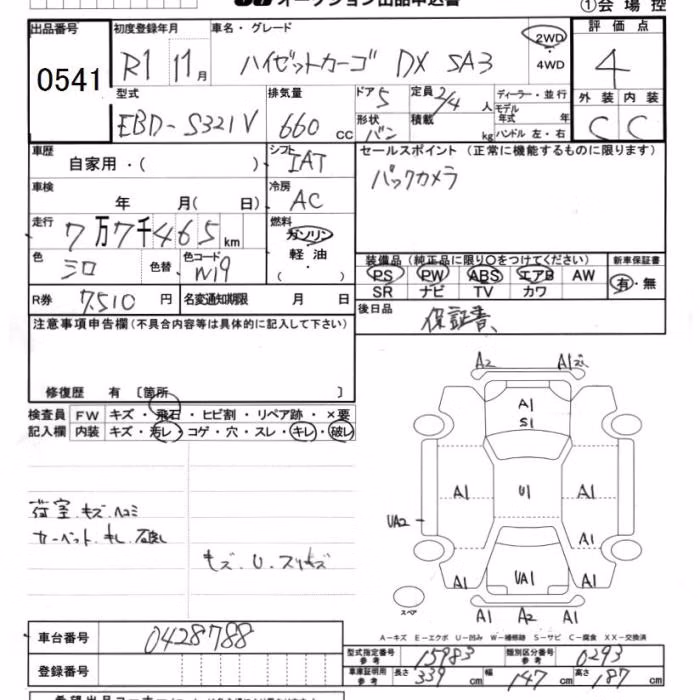 オークション出品申込書
①会場控
出品番号
0541
初度登録年月
R1 11月
車名・グレード
ハイゼットカーゴ DX SA3
2WD
4WD
評価点
4
外装 内装
C C
型式
EBD-S321V
排気量
660 cc
ドア 5
形状 バン
定員 2/4 人
積載 kg
ディーラー・並行
モデル年式 年
ハンドル 左・右
車歴
自家用・( )
シフト
IAT
セールスポイント (正常に機能するものに限ります)
バックカメラ
車検
年 月( 日)
冷房
AC
走行
7万7千465km
燃料
ガソリン
軽油
・( )
色
シロ
色替
色コード
W19
装備品 (純正品に限り○をつけてください)
PS PW ABS エアB AW
SR ナビ TV カワ
新車保証書
有・無
R券 7,510 円
名変通知期限 月 日
後日品
保証書、
注意事項申告欄(不具合内容等は具体的に記入して下さい)
修復歴 有 〔箇所 〕
検査員 FW キズ・飛石・ヒビ割・リペア跡・×要
記入欄 内装 キズ・汚レ・コゲ・穴・スレ・キレ・破レ
荷室.キズ.ヘコミ
カーペット.キレ.破レ
キズ.U.スリキズ
A2 A1
A1
S1
A1 U1 A1
UA2
A1
A1 UA1 A1
スペア
A1 A2 A1
A-キズ E-エクボ U-凹み W-補修跡 S-サビ C-腐食 XX-交換済
車台番号 0428788
登録番号
型式指定番号 参考 15983
類別区分番号 参考 0293
車庫証明用 参考 長さ 339 cm 幅 147 cm 高さ 187 cm